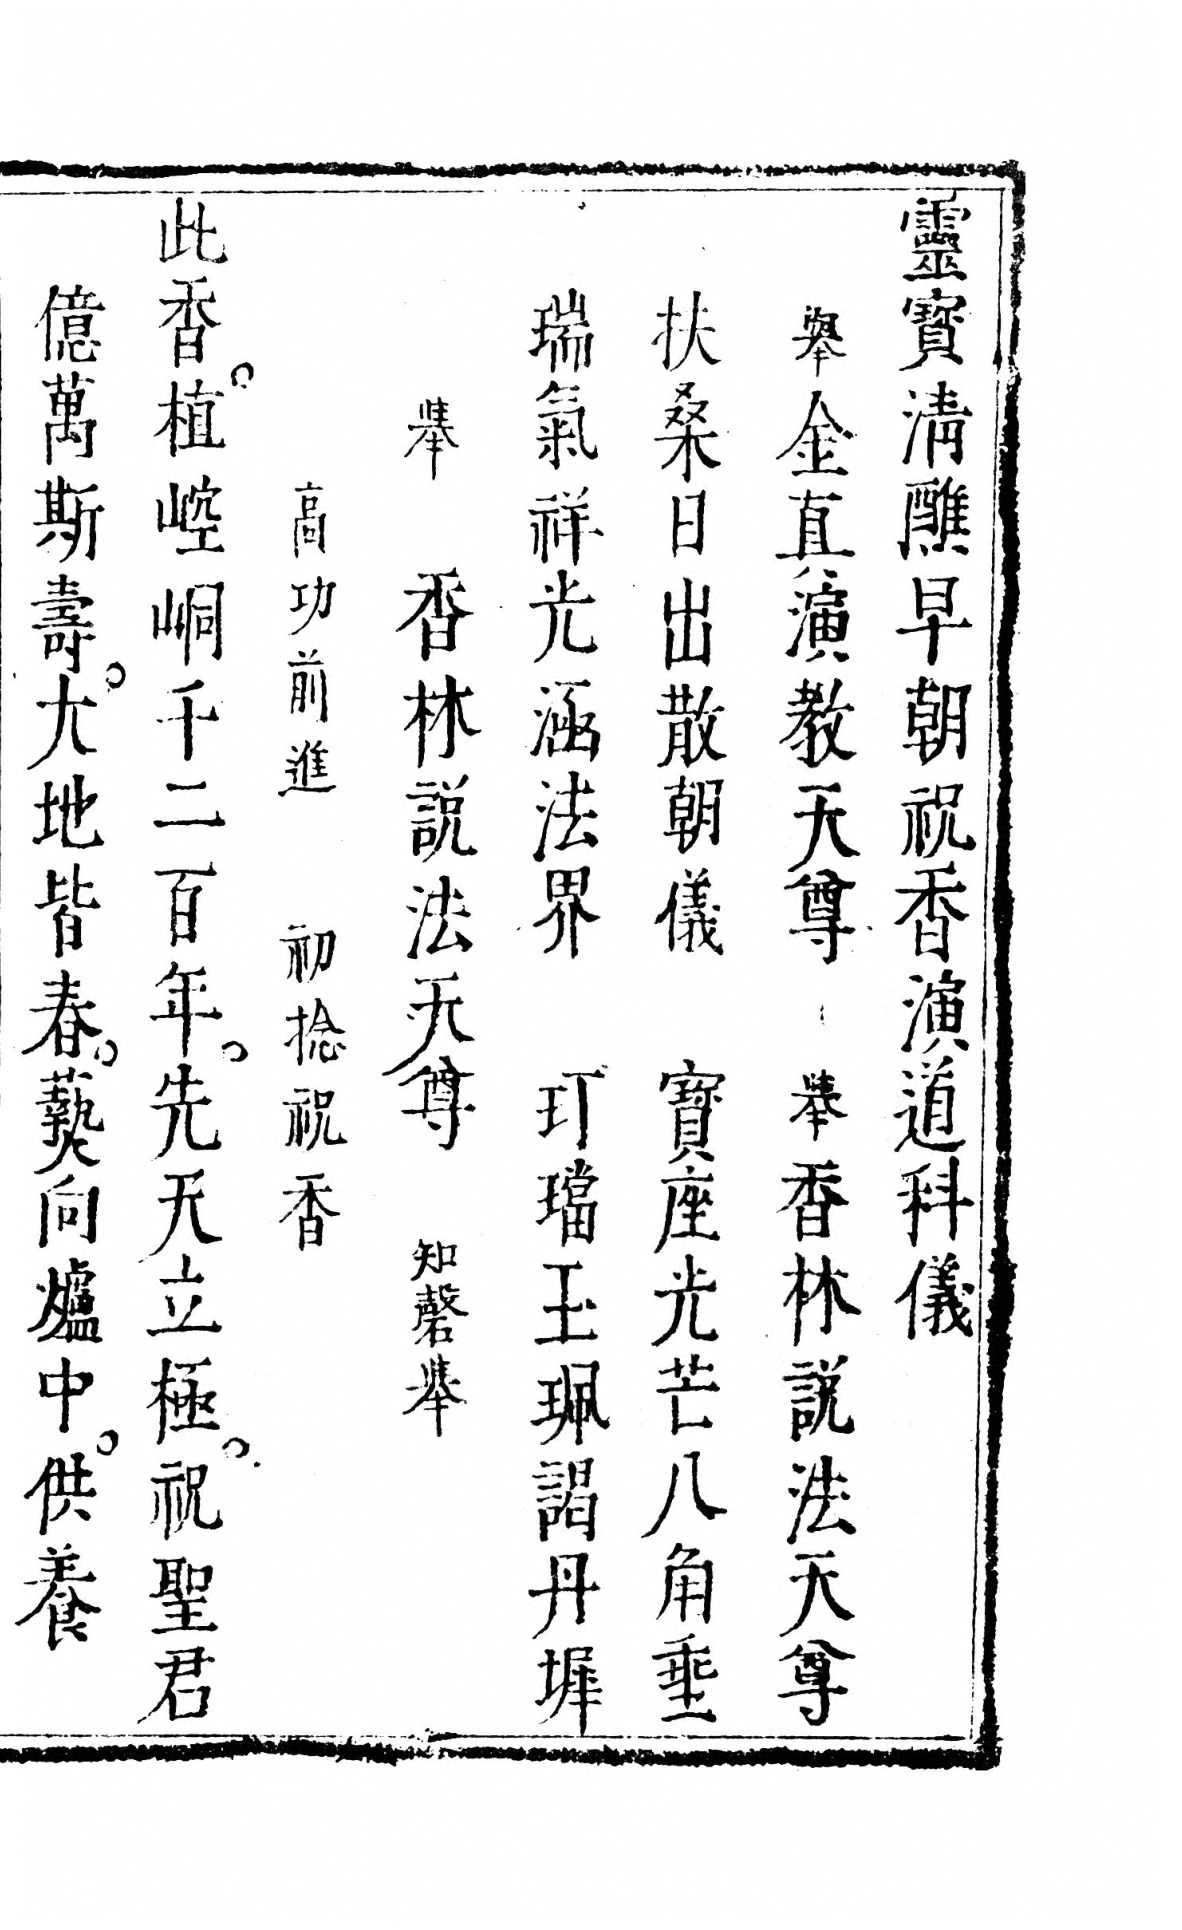 靈寶清醮早朝祝香演道科儀
舉金真演教天尊 舉香林說法天尊
扶桑日出散朝儀 寶座光芒八角垂
瑞氣祥光涵法界 玎璫玉珮謁丹墀
舉 香林說法天尊 知磬舉
高功前進 初捻祝香
此香。植崆峒千二百年。先天立極。祝聖君
億萬斯壽。大地皆春。爇向爐中。供養